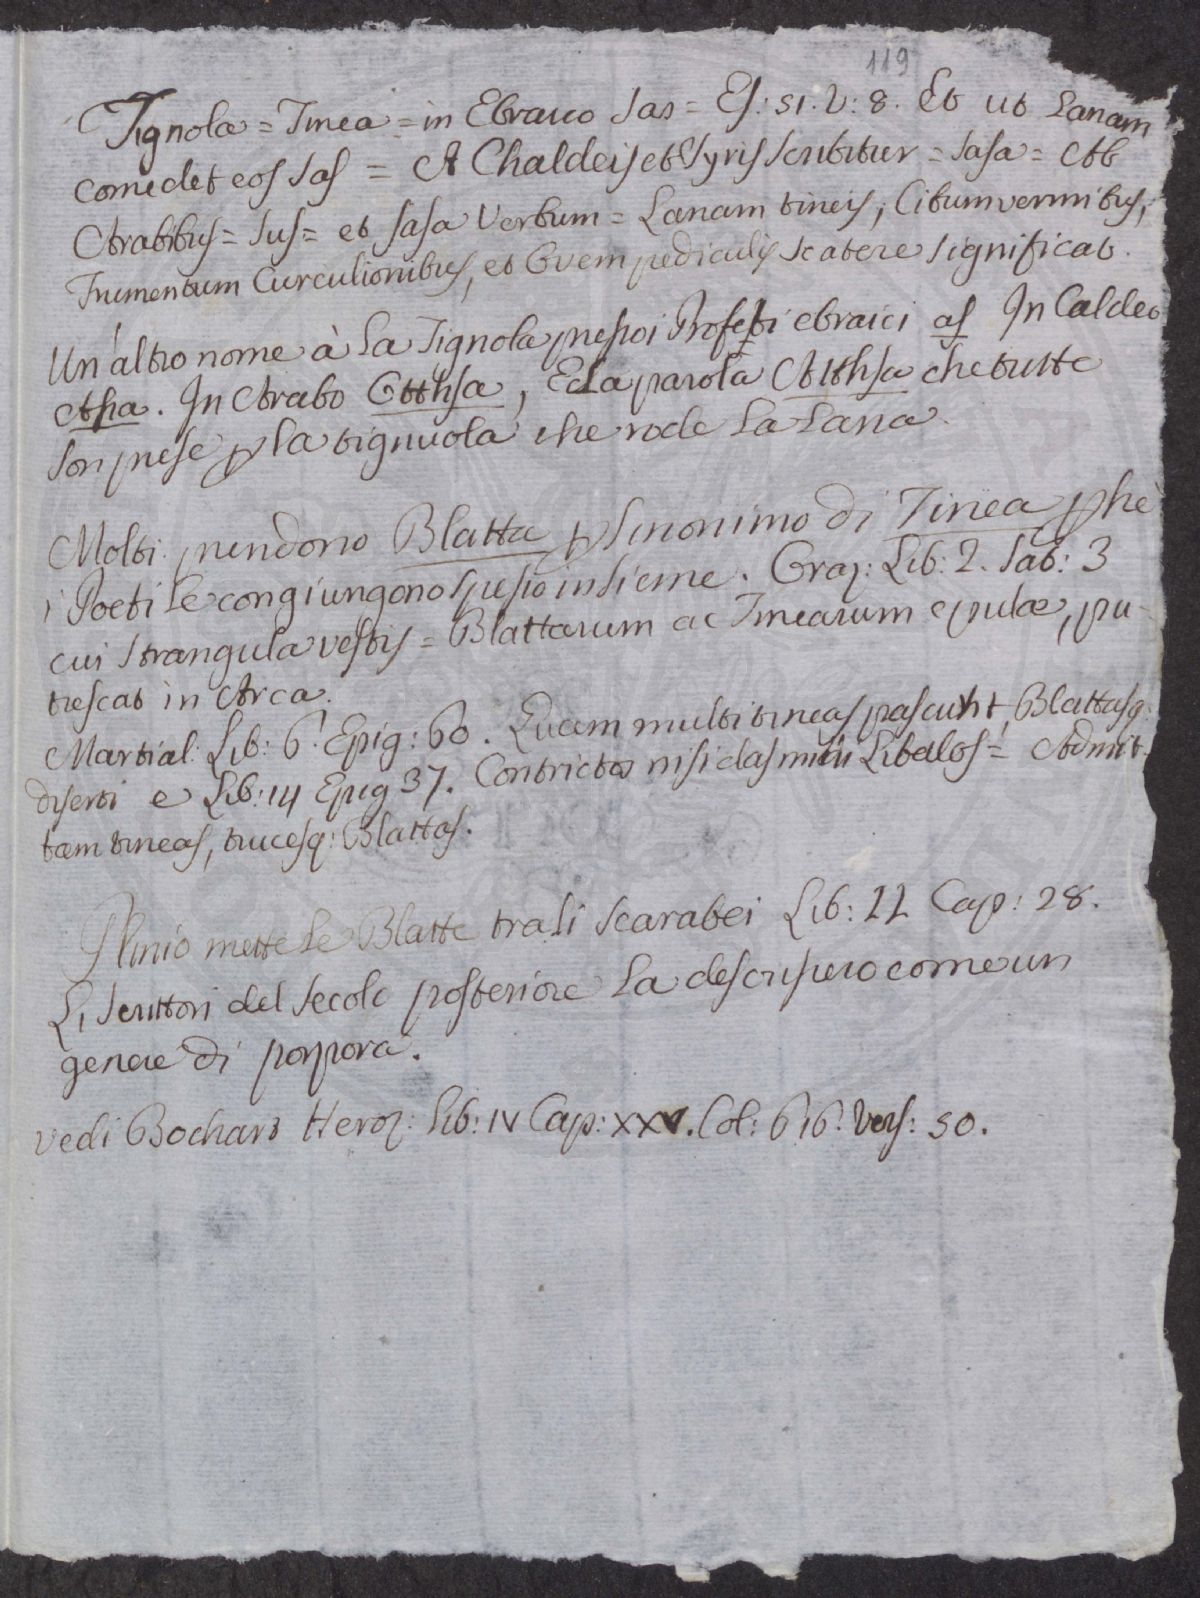 119
Tignola = Tinea = in Ebraico Sas = Es: 51. V: 8. Et ut Lanam
comedet eos Sas = A Chaldeis et Syris scribitur = Sasa = Ab
Arabibus = Sus = et sasa Verbum = Lanam tineis, Cibum vermibus,
Frumentum Curculionibus, et Ovem pediculis scatere significat.
Un'altro nome à La Tignola presso i Profeti ebraici as In Caldeo
Assa. In Arabo Otthsa, E La parola Atthsa che tutte
son prese p la tignuola che rode La Lana.
Molti prendono Blatta p sinonimo di Tinea p che
i Poeti Le congiungono spesso insieme. Oraz: Lib: 2. Sat: 3
cui stragula vestis = Blattarum ac Tinearum epulae, pu-
trescat in Arca.
Martial: Lib: 6. Epig: 60. Quam multi tineas pascunt Blattasq:
diserti e Lib: 14 Epig 37. Constrictos nisi das mihi Libellos = Admit-
tam tineas, trucesq: Blattas.
Plinio mette Le Blatte tra li scarabei Lib: 11 Cap: 28.
Li scrittori del secolo posteriore La descrissero come un
genere di porpora.
vedi Bochart Heroz: Lib: IV Cap: XXV. Col: 616. Vers: 50.